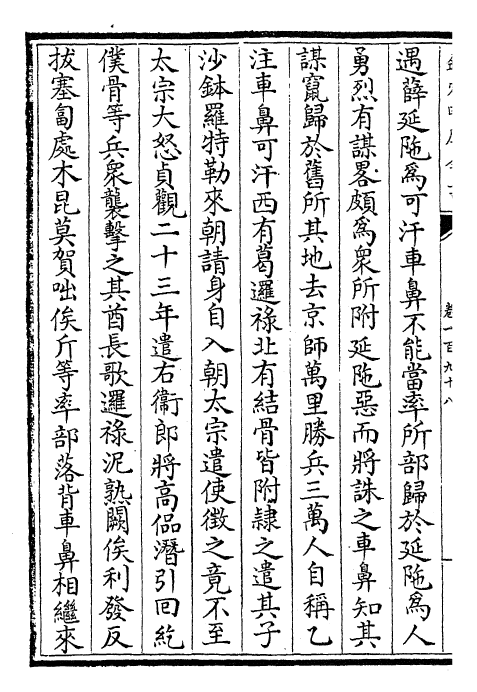 卷一百九十八
遇薛延陁為可汗車鼻不能當率所部歸於延陁為人
勇烈有謀畧頗為衆所附延陁惡而將誅之車鼻知其
謀竄歸於舊所其地去京師萬里勝兵三萬人自稱乙
注車鼻可汗西有葛邏祿北有結骨皆附隷之遣其子
沙鉢羅特勒來朝請身自入朝太宗遣使徵之竟不至
太宗大怒貞觀二十三年遣右衞郎將高偘潛引回紇
僕骨等兵衆襲擊之其酋長歌邏祿泥熟闕俟利發反
拔塞匐處木昆莫賀咄俟斤等率部落背車鼻相繼來